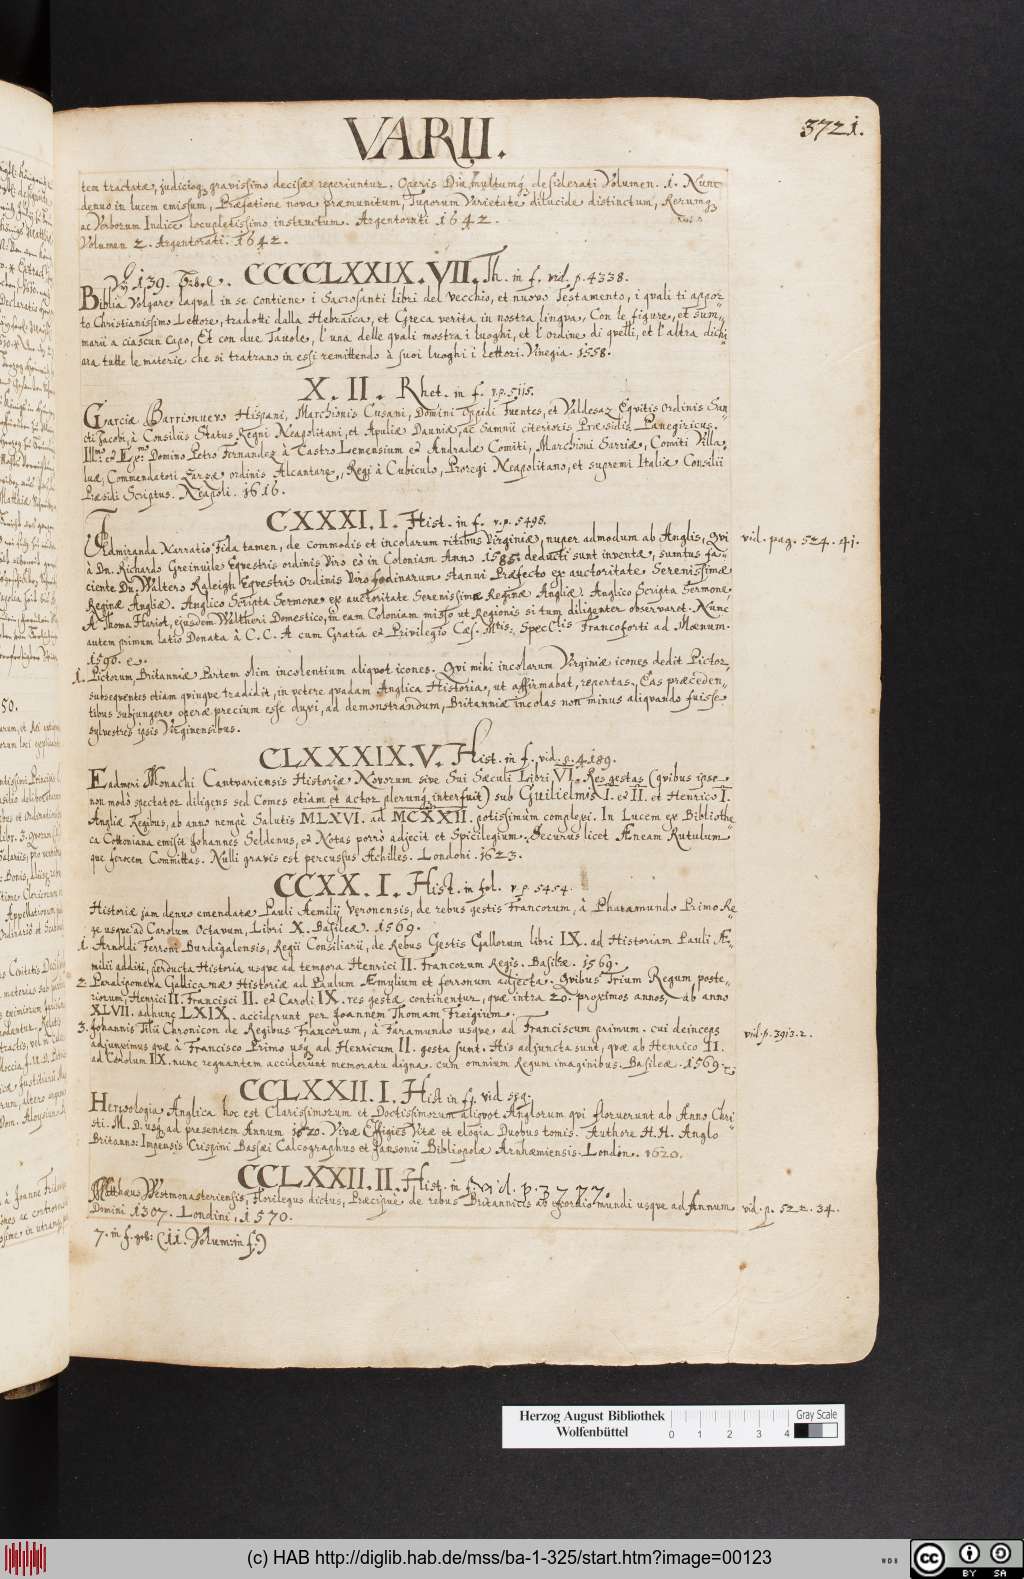 VARII.
3721.
tem tractatæ, judicioq; gravissimo decisæ reperiuntur. Operis Diu multumq; desiderati Volumen. 1. Nunc
denuo in lucem emissum, Præfatione nova præmunitum, Typorum Varietate dilucide distinctum, Rerumq;
ac Verborum Indice locupletissimo instructum. Argentorati 1642.
Volumen 2. Argentorati. 1642.
139. CCCCLXXIX. VII. Th. in f. vid. p. 4338.
Biblia Volgare laqual in se contiene i Sacrosanti libri del vecchio, et nuovo Testamento, i quali ti appor-
to Christianissimo Lettore, tradotti dalla Hebraica, et Greca verita in nostra lingua, Con le figure, et som-
marii a ciascun Capo, Et con due Tavole, l'una delle quali mostra i luoghi, et l'ordine di quelli, et l'altra dichi-
ara tutte le materie che si tratrano in essi remittendo à suoi luoghi i lettori. Vinegia. 1558.
X. II. Rhet. in f. v. p. 5115.
Garciæ Barrionuevo Hispani, Marchionis Cusani, Domini Oppidi Fuentes, et Valdesaz Equitis Ordinis San-
cti Jacobi, à Consiliis Status Regni Neapolitani, et Apuliæ Dauniæ, ac Samnii citerioris Præsidis Panegiricus.
Ill.mo et Ex.mo Domino Petro Fernandez à Castro Lemensium et Andradæ Comiti, Marchioni Sarriæ, Comiti Villa-
luæ, Commendatori Zarzæ ordinis Alcantaræ, Regi à Cubiculo, Proregi Neapolitano, et supremi Italiæ Consilii
Præsidi Scriptus. Neapoli. 1616.
CXXXI. I. Hist. in f. v. p. 5498.
Admiranda Narratio Fida tamen, de commodis et incolarum ritibus Virginiæ, nuper admodum ab Anglis, qui
vid. pag. 524. 41.
à Dn. Richardo Greinvile Equestris ordinis Viro eò in Coloniam Anno 1585. deducti sunt inventæ, sumtus fa-
ciente Dn. Waltero Raleigh Equestris Ordinis Viro fodinarum stanni Præfecto ex auctoritate Serenissimæ
Reginæ Angliæ. Anglico Scripta Sermone ex auctoritate Serenissimæ Reginæ Angliæ. Anglico Scripta Sermone
A Thoma Hariot, ejusdem Waltheri Domestico, in eam Coloniam misso ut Regionis situm diligenter observaret. Nunc
autem primum latio Donata à C. C. A cum Gratia et Privilegio Cæs. M.tis. Spec.lis Francoforti ad Moenum.
1590.
1. Pictorum, Britanniæ Partem olim incolentium aliquot icones. Qui mihi incolarum Virginiæ icones dedit Pictor,
subsequentes etiam quinque tradidit, in vetere quadam Anglica Historia, ut affirmabat, repertas, Eas præceden-
tibus subjungere operæ precium esse duxi, ad demonstrandum, Britanniæ incolas non minus aliquando fuisse
sylvestres ipsis Virginensibus.
CLXXXIX. V. Hist. in f. vid. p. 4189.
Eadmeri Monachi Cantuariensis Historiæ Novorum sive Sui Sæculi Libri VI. Res gestas (quibus ipse
non modò spectator diligens sed Comes etiam et actor plerunq; interfuit) sub Guilielmis I. et II. et Henrico I.
Angliæ Regibus, ab anno nempè Salutis MLXVI. ad MCXXII. potissimùm complexi. In Lucem ex Bibliothe-
ca Cottoniana emisit Johannes Seldenus, et Notas porrò adjecit et Spicilegium. Securus licet Æneam Rutulum
que ferocem Committas. Nulli gravis est percussus Achilles. Londoni. 1623.
CCXX. I. Hist. in fol. v. p. 5454.
Historiæ jam denuo emendatæ Pauli Aemilij Veronensis, de rebus gestis Francorum, à Pharamundo Primo Re-
ge usque ad Carolum Octavum, Libri X. Basileæ. 1569.
1. Arnoldi Ferroni Burdigalensis, Regii Consiliarii, de Rebus Gestis Gallorum libri IX. ad Historiam Pauli Æ-
milii additi, perducta Historia usque ad tempora Henrici II. Francorum Regis. Basileæ. 1569.
2. Paralipomena Gallicanæ Historiæ ad Paulum Æmylium et Ferronum adjecta. Quibus Trium Regum poste-
riorum, Henrici II. Francisci II. et Caroli IX. res gestæ continentur, quæ intra 20. proximos annos, ab anno
XLVII. adhunc LXIX. acciderunt per Joannem Thomam Freigium.
3. Johannis Tilii Chronicon de Regibus Francorum, à Faramundo usque ad Franciscum primum. cui deinceps
vid. p. 3913. 2.
adjunximus quæ à Francisco Primo usq; ad Henricum II. gesta sunt. His adjuncta sunt, quæ ab Henrico II.
ad Carolum IX. nunc regnantem acciderunt memoratu digna. cum omnium Regum imaginibus. Basileæ. 1569.
CCLXXII. I. Hist in f. vid seq.
Herωologia Anglica hoc est Clarissimorum et Doctissimorum aliquot Anglorum qui floruerunt ab Anno Chri-
sti. M. D. usq; ad presentem Annum 1620. Vivæ Effigies Vitæ et elogia Duobus tomis. Authore H. H. Anglo
Britanno: Impensis Crispini Passæi Calcographus et Jansonii Bibliopolæ Arnhæmiensis. London. 1620.
CCLXXII. II. Hist. in f. vid. p. 3777.
Matthæus Westmonasteriensis, Florilegus dictus, Præcipuè de rebus Britannicis ab exordio mundi usque ad Annum
vid. p. 522. 34.
Domini 1307. Londini, 1570.
7. in f. (11. Volum: in f.)
Herzog August Bibliothek
Wolfenbüttel
0 1 2 3 4
Gray Scale
(c) HAB http://diglib.hab.de/mss/ba-1-325/start.htm?image=00123
WDB
cc BY SA